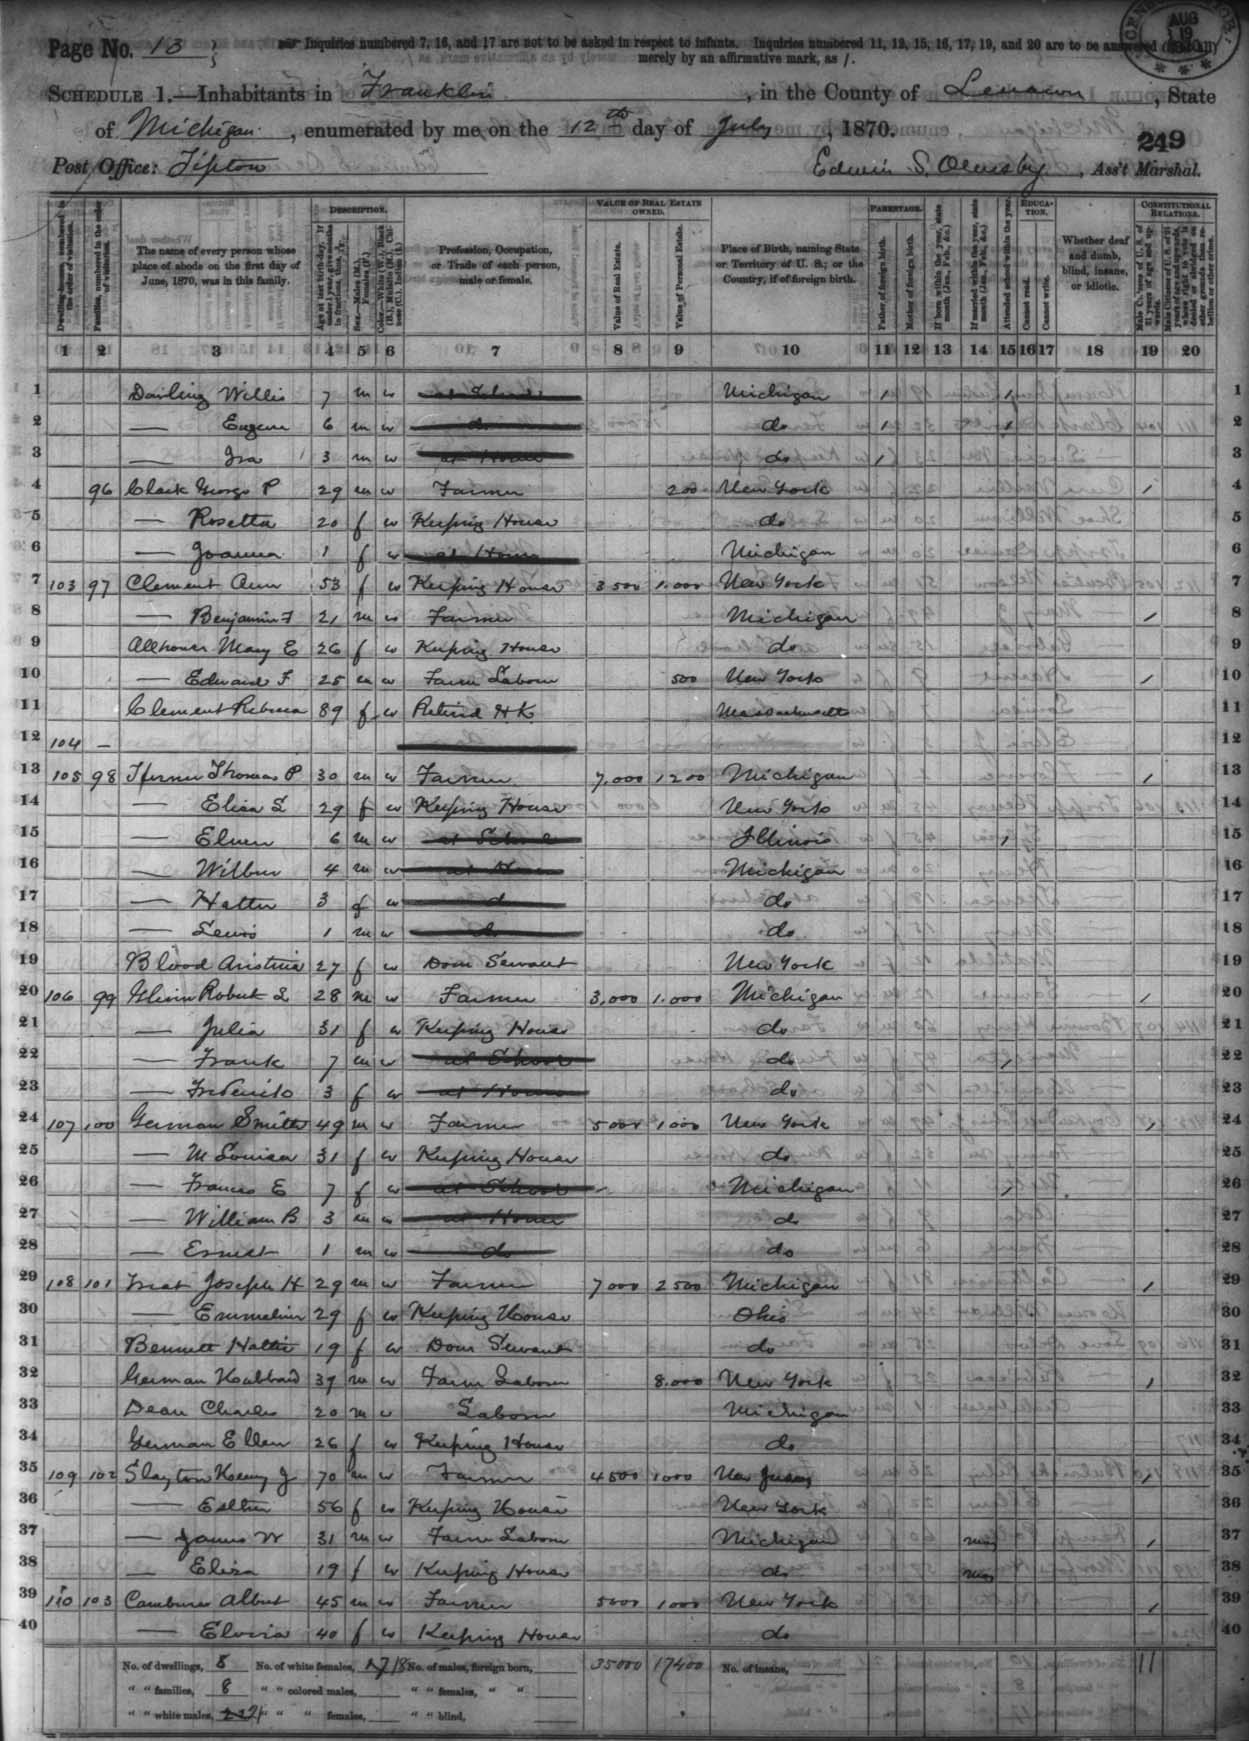 Page No. 13
Inquiries numbered 7, 16, and 17 are not to be asked in respect to infants. Inquiries numbered 11, 12, 15, 16, 17, 19, and 20 are to be answered (if at all)
merely by an affirmative mark, as /.
AUG 19
SCHEDULE 1.—Inhabitants in Franklin, in the County of Lenawee, State
of Michigan, enumerated by me on the 12th day of July, 1870.
249
Post Office: Tipton
Edwin S. Ormsby, Ass't Marshal.
DESCRIPTION.
VALUE OF REAL ESTATE OWNED.
PARENTAGE.
EDUCATION.
CONSTITUTIONAL RELATIONS.
The name of every person whose place of abode on the first day of June, 1870, was in this family.
Profession, Occupation, or Trade of each person, male or female.
Value of Real Estate.
Value of Personal Estate.
Place of Birth, naming State or Territory of U. S.; or the Country, if of foreign birth.
Father of foreign birth.
Mother of foreign birth.
If born within the year, state month (Jan., Feb., &c.)
If married within the year, state month (Jan., Feb., &c.)
Attended school within the year.
Cannot read.
Cannot write.
Whether deaf and dumb, blind, insane, or idiotic.
1 2 3 4 5 6 7 8 9 10 11 12 13 14 15 16 17 18 19 20
1 Darling Willis 7 m w at School Michigan / / 1
2 — Eugene 6 m w do do / / 2
3 — Ira 3 m w at Home do / 3
4 96 Clark George P 29 m w Farmer 200 New York / 4
5 — Rosetta 20 f w Keeping House do 5
6 — Joanna 1 f w at Home Michigan 6
7 103 97 Clement Ann 53 f w Keeping House 3500 1.000 New York 7
8 — Benjamin F 21 m w Farmer Michigan / 8
9 Mary E 26 f w Keeping House do 9
10 — Edward F 25 m w Farm Labour 500 New York / 10
11 Clement Rebecca 89 f w Retired H K Massachusetts 11
12 104 — 12
13 105 98 Thomas P 30 m w Farmer 7,000 1200 Michigan / 13
14 — Eliza S 29 f w Keeping House New York 14
15 — Elmer 6 m w at School Illinois / 15
16 — Wilbur 4 m w at Home Michigan 16
17 — Hattie 3 f w do do 17
18 — Lewis 1 m w do do 18
19 Blood 27 f w Dom Servant New York 19
20 106 99 Robert L 28 m w Farmer 3,000 1.000 Michigan / 20
21 — Julia 31 f w Keeping House do 21
22 — Frank 7 m w at School do / 22
23 — 3 f w at Home do 23
24 107 100 German Smith 49 m w Farmer 5000 1000 New York / 24
25 — M Louisa 31 f w Keeping House do 25
26 — Frances E 7 f w at School Michigan / 26
27 — William B 3 m w at Home do 27
28 — Ernest 1 m w do do 28
29 108 101 Treat Joseph H 29 m w Farmer 7000 2500 Michigan / 29
30 — Emmeline 29 f w Keeping House Ohio 30
31 Bennett Hattie 19 f w Dom Servant do 31
32 German Hubbard 39 m w Farm Labour 8.000 New York / 32
33 Dean Charles 20 m w Labour Michigan 33
34 German Ellen 26 f w Keeping House do 34
35 109 102 Slayton Henry J 70 m w Farmer 4500 1000 New Jersey / 35
36 — Esther 56 f w Keeping House New York 36
37 — James W 31 m w Farm Labour Michigan May / 37
38 — Eliza 19 f w Keeping House do May 38
39 110 103 Camburn Albert 45 m w Farmer 5000 1000 New York / 39
40 — Elvira 40 f w Keeping House do 40
No. of dwellings, 8 No. of white females, 18 No. of males, foreign born, 35000 17400 No. of insane, 11
" " families, 8 " " colored males, " " females, " "
" " white males, " " " females, " " blind,